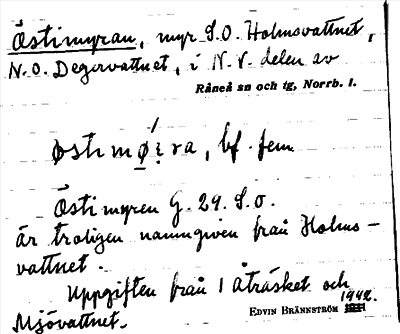 Östimyran, myr S.O. Holmsvattnet,
N.O. Degervattnet, i N.V. delen av
Råneå sn och tg, Norrb. l.
østimǿi̭ra, bf. fem
Östimyren G. 29. S.O.
är troligen namngiven från Holms-
vattnet.
Uppgiften från 1 Åträsket och
Mjövattnet.
EDVIN BRÄNNSTRÖM 1942.